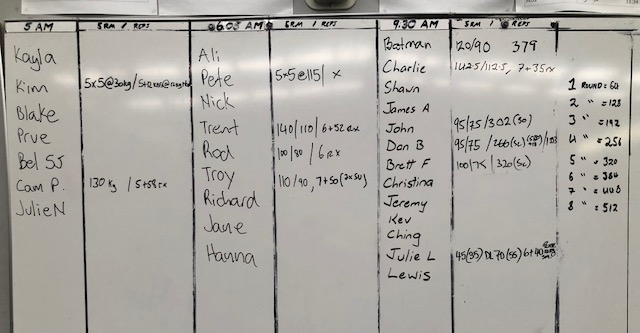 5 AM 5RM / REPS
Kayla
Kim 5x5@30kg/
Blake
Prue
Bel SS
Cam P. 130 kg / 5+58rx
Julie N
6.05 AM 5RM / REPS
Ali
Pete 5x5@115/ x
Nick
Trent 140/110/6+52rx
Rod 100/80 / 6rx
Troy 110/90, 7+50
Richard
Jane
Hanna
9.30 AM 5RM / REPS
Bateman 120/90 379
Charlie 142.5/112.5, 7+35rx
Shawn
James A
John 95/75/302(50)
Dan B 95/75
Brett F 100/75/320(50)
Christina
Jeremy
Kev
Ching
Julie L 45(35) DL 70(55)
Lewis
1 ROUND = 64
2 " = 128
3 " = 192
4 " = 256
5 " = 320
6 " = 384
7 " = 448
8 " = 512